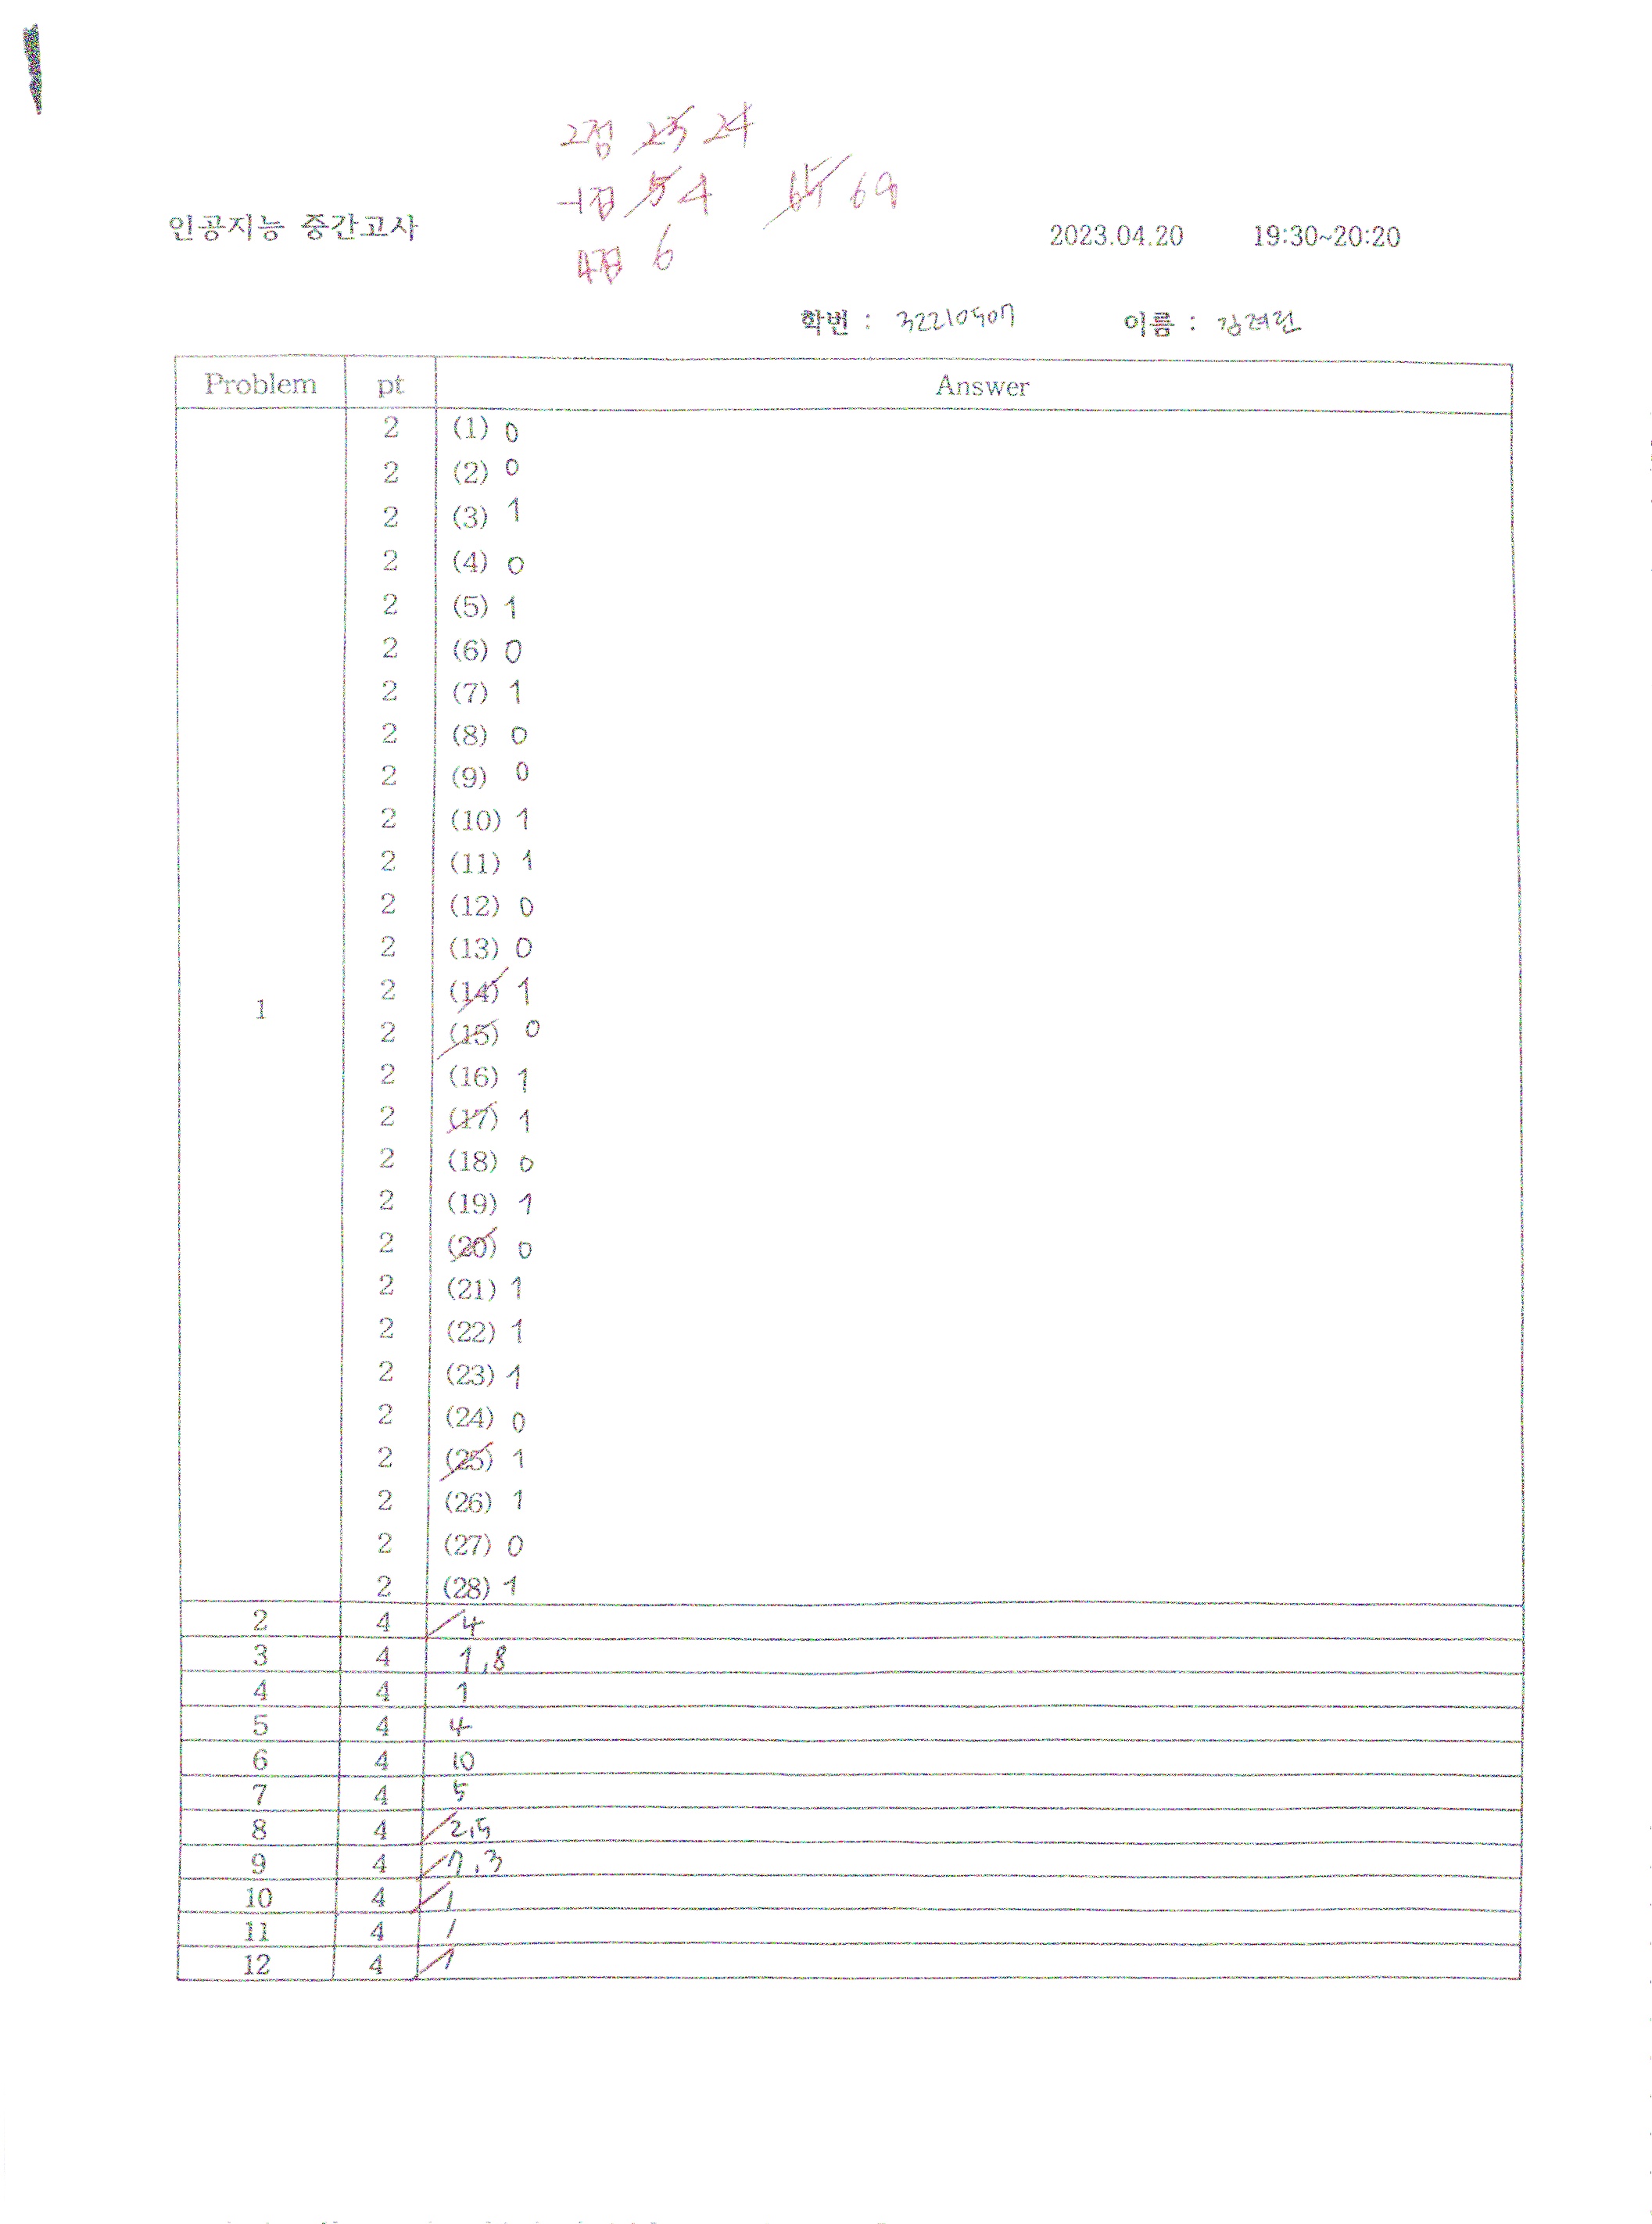 2점 23 24
-1점 5 4 65 69
인공지능 중간고사 2023.04.20 19:30~20:20
4점 6
학번 : 32210507 이름 :
Problem pt Answer
2 (1) 0
2 (2) 0
2 (3) 1
2 (4) 0
2 (5) 1
2 (6) 0
2 (7) 1
2 (8) 0
2 (9) 0
2 (10) 1
2 (11) 1
2 (12) 0
2 (13) 0
2 (14) 1
1
2 (15) 0
2 (16) 1
2 (17) 1
2 (18) 0
2 (19) 1
2 (20) 0
2 (21) 1
2 (22) 1
2 (23) 1
2 (24) 0
2 (25) 1
2 (26) 1
2 (27) 0
2 (28) 1
2 4 4
3 4 1,8
4 4 1
5 4 4
6 4 10
7 4 5
8 4 2,5
9 4 7,3
10 4 1
11 4 1
12 4 1